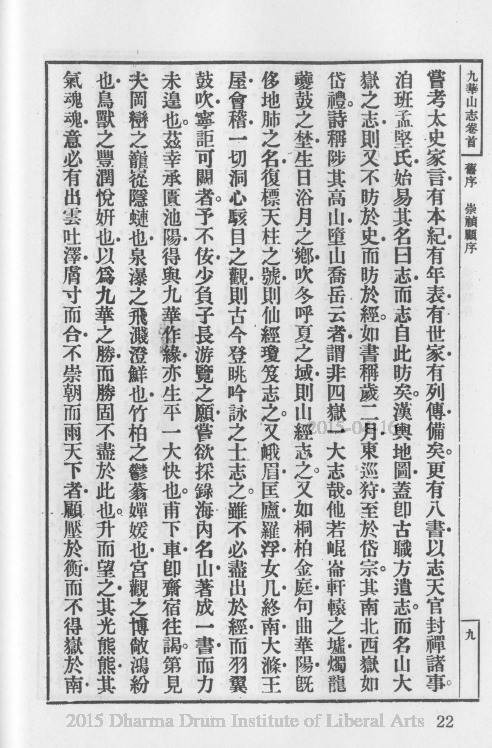 九華山志卷首 舊序 崇禎顧序 九
嘗考太史家言有本紀有年表有世家有列傳備矣。更有八書以志天官封禪諸事。
洎班孟堅氏始易其名曰志而志自此昉矣。漢輿地圖蓋卽古職方遺志。而名山大
嶽之志則又不昉於史而昉於經。如書稱歲二月東巡狩至於岱宗。其南北西嶽如
岱禮。詩稱陟其高山墮山喬岳云者謂非四嶽一大志哉。他若崐崙軒轅之墟燭龍
夔鼓之埜生日浴月之鄉吹冬呼夏之域則山經志之。又如桐柏金庭句曲華陽旣
侈地肺之名復標天柱之號則仙經瓊笈志之。又峨眉匡廬羅浮女几終南大滌王
屋會稽一切洞心駭目之觀則古今登眺吟詠之士志之。雖不必盡出於經而羽翼
鼓吹寧詎可闕者。予不佞少負子長游覽之願嘗欲採錄海內名山著成一書而力
未遑也。茲幸承匱池陽得與九華作緣亦生平一大快也。甫下車卽齋宿往謁。第見
夫岡巒之巃嵸隱蜒也泉瀑之飛濺澄鮮也竹柏之鬱蓊嬋媛也宮觀之博敞鴻紛
也鳥獸之豐潤悅妍也以爲九華之勝而勝固不盡於此也。升而望之其光熊熊其
氣魂魂意必有出雲吐澤膚寸而合不崇朝而雨天下者顧壓於衡而不得嶽於南
2015-04-16
2015 Dharma Drum Institute of Liberal Arts 22